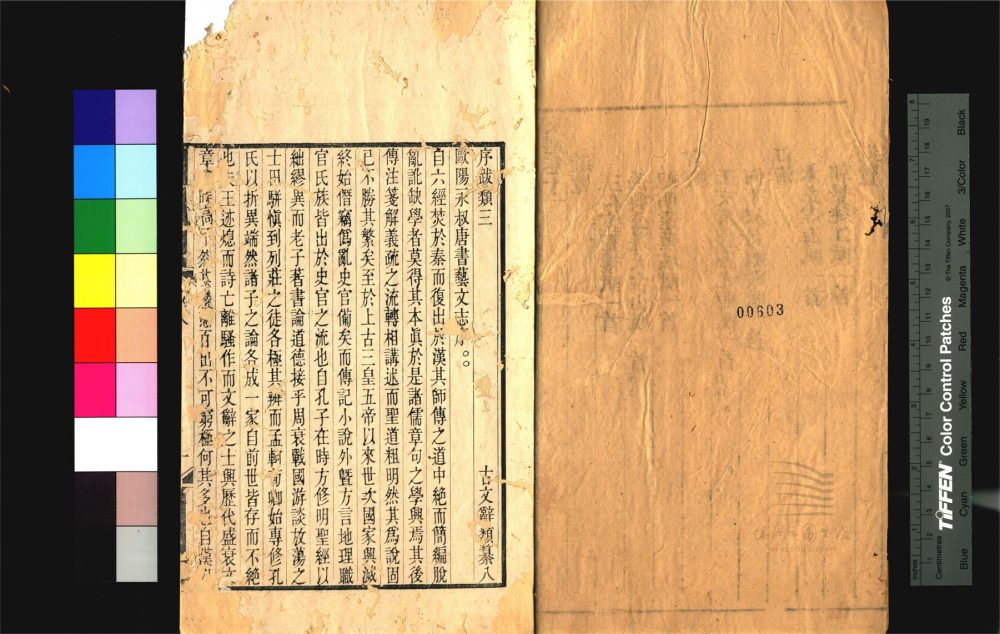 序跋類三
古文辭類纂八
歐陽永叔唐書藝文志序
自六經焚於秦而復出於漢其師傳之道中絕而簡編脫
亂訛缺學者莫得其本眞於是諸儒章句之學興焉其後
傳注箋解義疏之流轉相講述而聖道粗明然其爲說固
已不勝其繁矣至於上古三皇五帝以來世次國家興滅
終始僭竊僞亂史官備矣而傳記小說外曁方言地理職
官氏族皆出於史官之流也自孔子在時方修明聖經以
絀繆異而老子著書論道德接乎周衰戰國游談放蕩之
士田駢愼到列莊之徒各極其辨而孟軻荀卿始專修孔
氏以折異端然諸子之論各成一家自前世皆存而不絕
也夫王迹熄而詩亡離騷作而文辭之士興歷代盛衰文
章 百出不可窮極何其多也自漢
00603
TIFFEN® Color Control Patches
© The Tiffen Company, 2007
Inches
Centimetres
1 2 3 4 5 6 7 8
1 2 3 4 5 6 7 8 9 10 11 12 13 14 15 16 17 18 19
Blue Cyan Green Yellow Red Magenta White 3/Color Black